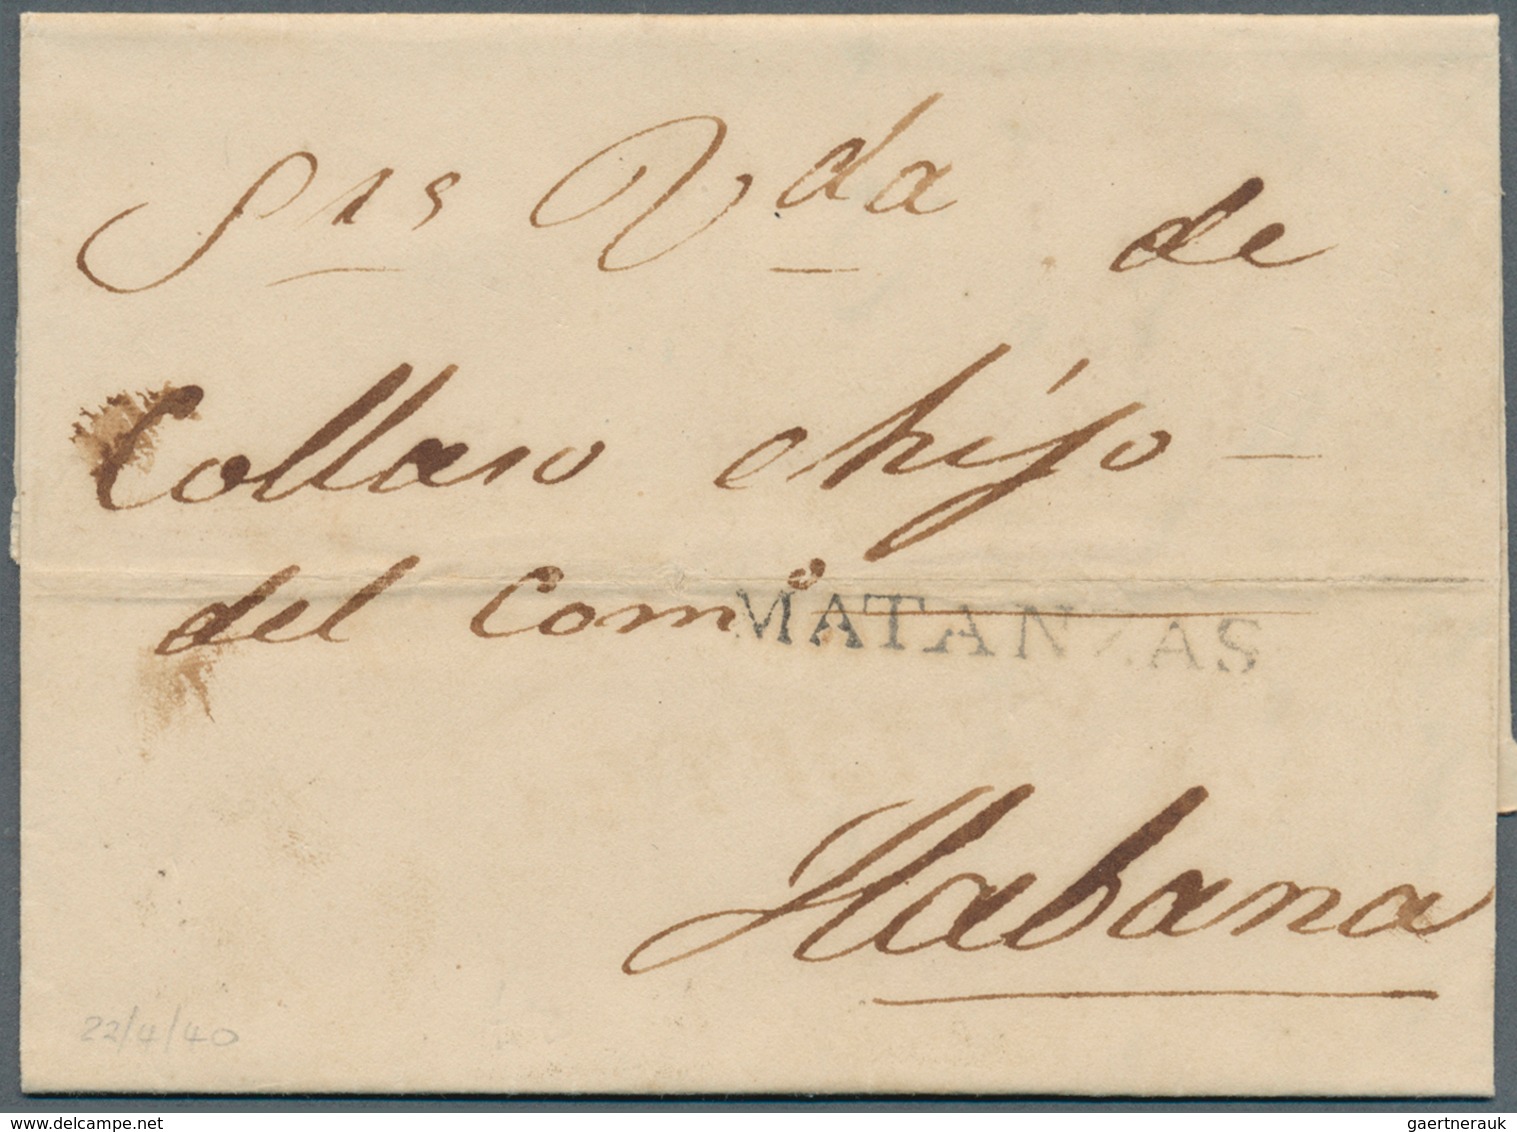 Srs Vda de
Collaso e hijo
del Como
MATANZAS
Habana
22/4/40
delcampe.net
gaertnerauk